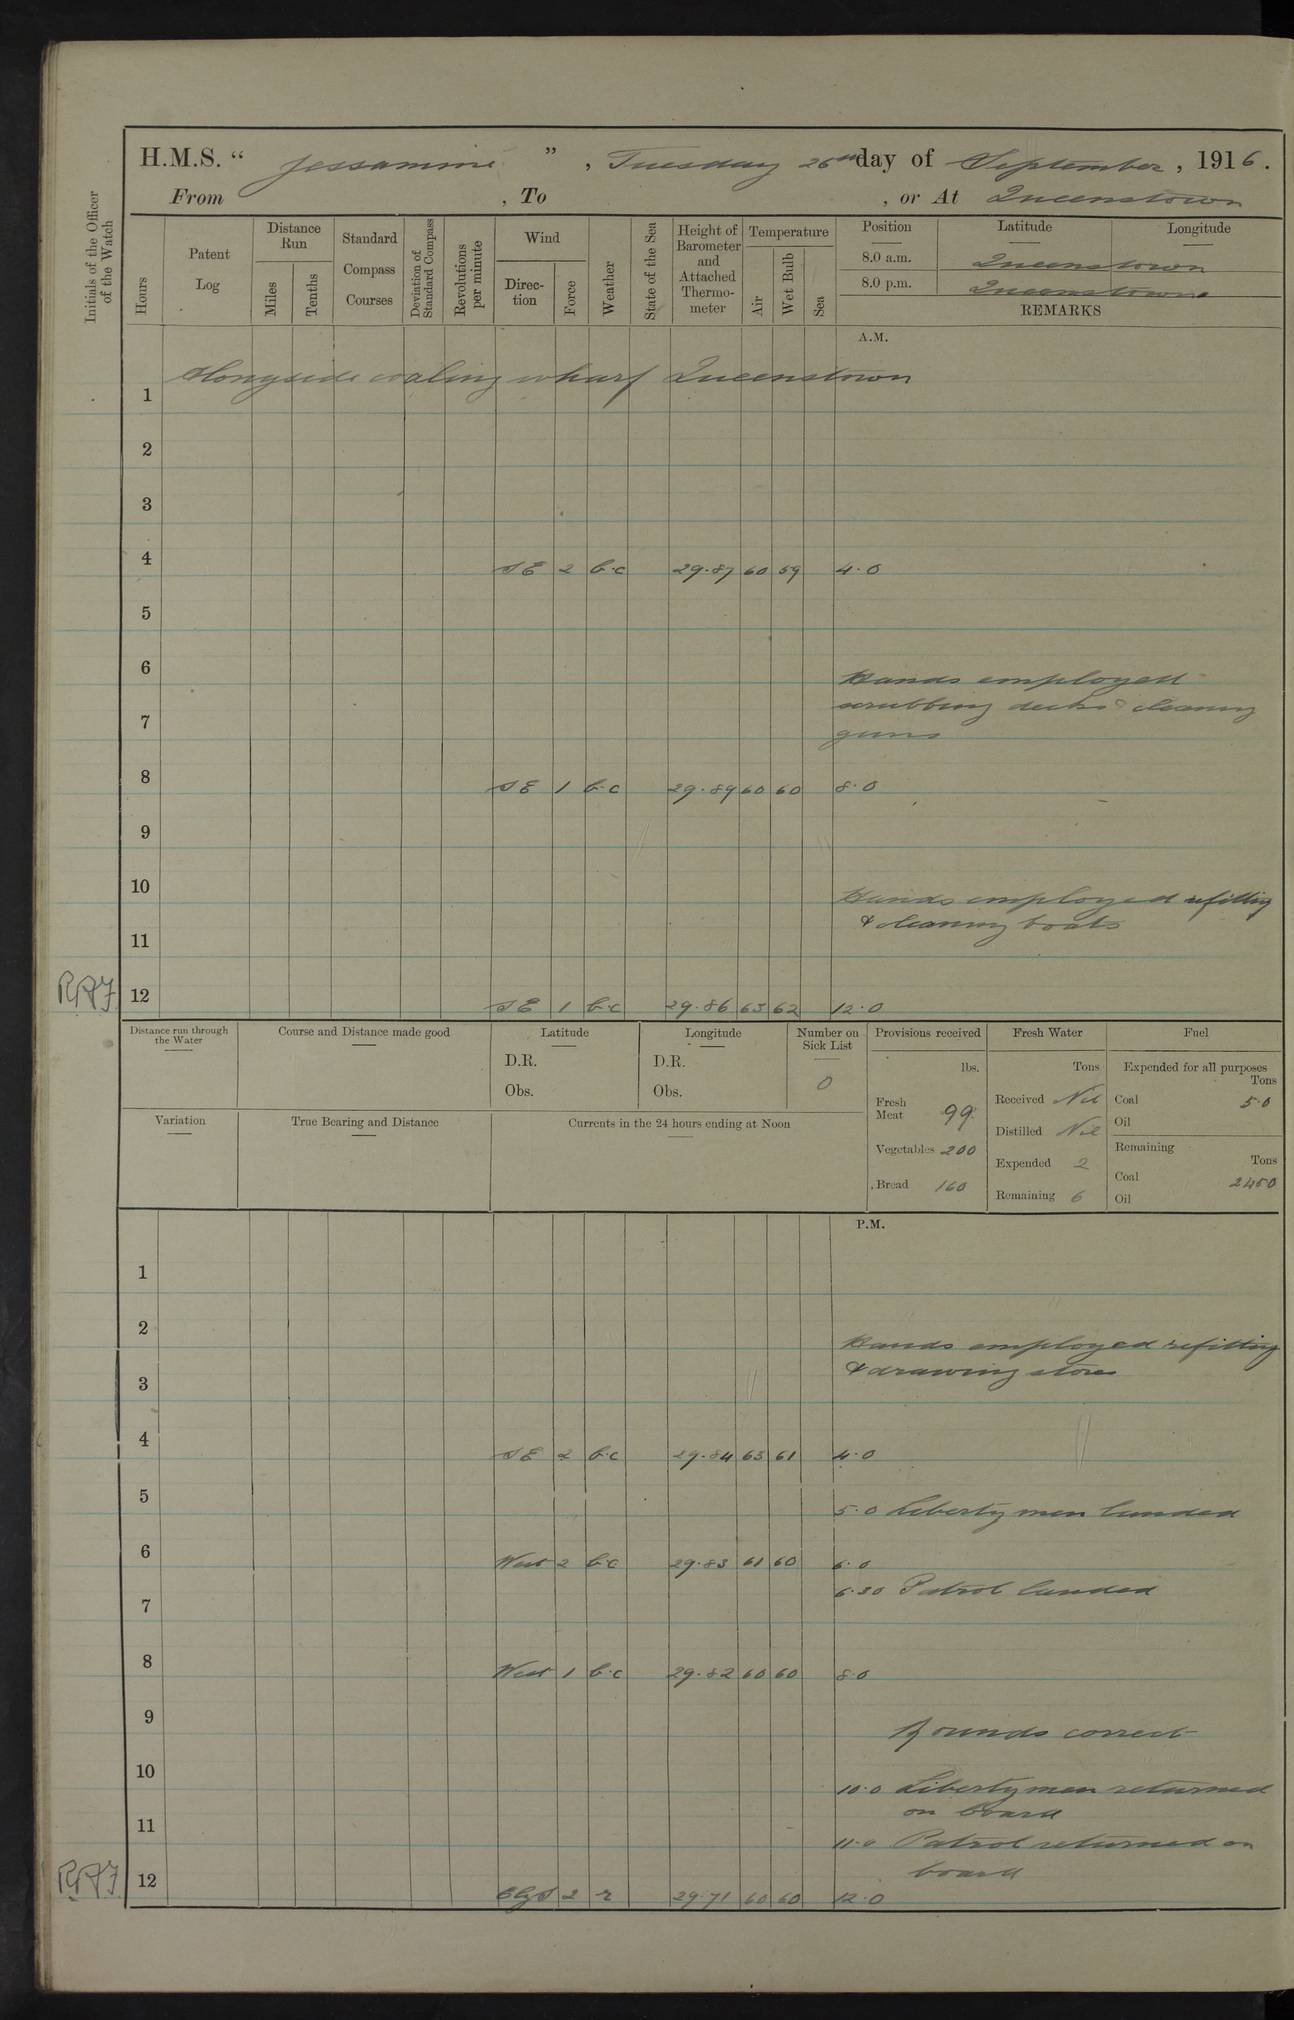 H.M.S. “ Jessamine ” , Tuesday 26th day of September , 1916.
From , To , or At Queenstown
Initials of the Officer of the Watch
Hours
Patent Log
Distance Run
Miles
Tenths
Standard Compass Courses
Deviation of Standard Compass
Revolutions per minute
Wind
Direction
Force
Weather
State of the Sea
Height of Barometer and Attached Thermometer
Temperature
Air
Wet Bulb
Sea
Position Latitude Longitude
8.0 a.m. Queenstown
8.0 p.m. Queenstown
REMARKS
A.M.
Alongside coaling wharf Queenstown
1
2
3
4 SE 2 b.c 29.87 60 59 4.0
5
6 Hands employed
scrubbing decks & cleaning
7
guns
8 SE 1 b.c 29.89 60 60 8.0
9
10 Hands employed refitting
& cleaning boats
11
12 SE 1 b.c 29.86 63 62 12.0
Distance run through the Water
Course and Distance made good
Latitude
D.R.
Obs.
Longitude
D.R.
Obs.
Number on Sick List
0
Variation
True Bearing and Distance
Currents in the 24 hours ending at Noon
Provisions received
lbs.
Fresh Meat 99
Vegetables 200
Bread 160
Fresh Water
Tons
Received Nil
Distilled Nil
Expended 2
Remaining 6
Fuel
Expended for all purposes
Tons
Coal 5.0
Oil
Remaining
Tons
Coal 245.0
Oil
P.M.
1
2 Hands employed refitting
& drawing stores
3
4 SE 2 b.c 29.84 63 61 4.0
5 5.0 Liberty men landed
6 West 2 b.c 29.83 61 60 6.0
6.30 Patrol landed
7
8 West 1 b.c 29.82 60 60 8.0
9 Rounds correct
10 10.0 Liberty men returned
on board
11 11.0 Patrol returned on
board
12 EbyS 2 r 29.71 60 60 12.0